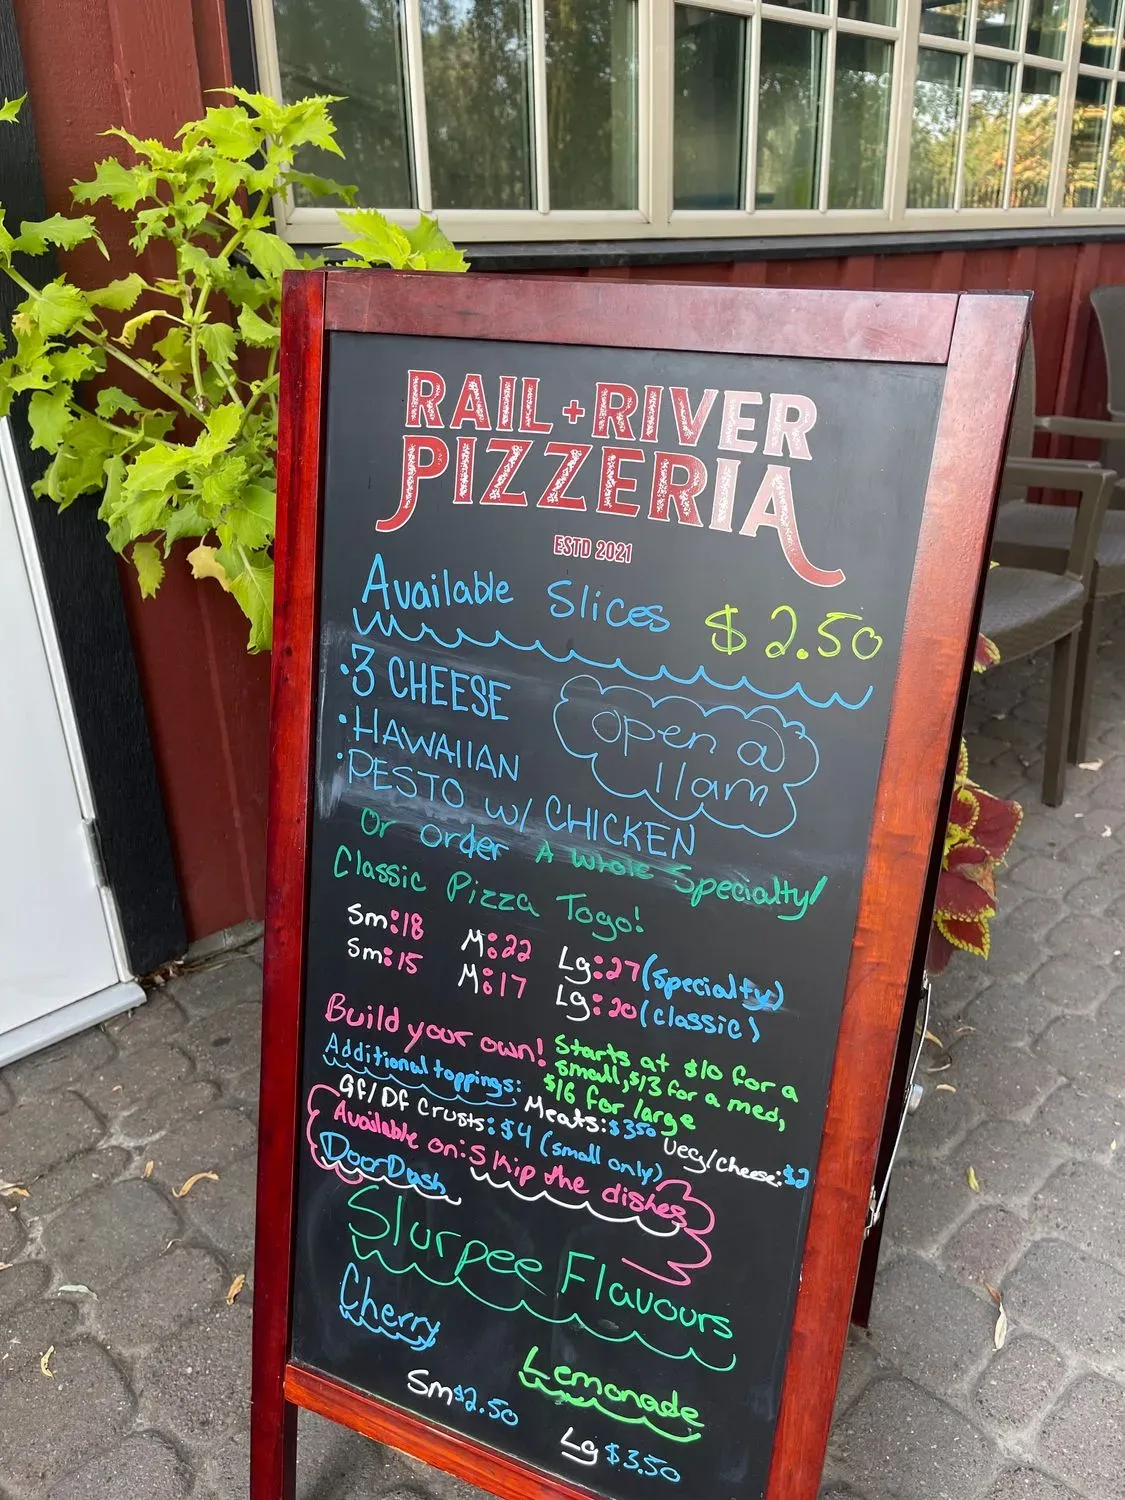 RAIL + RIVER
PIZZERIA
ESTD 2021
Available Slices $2.50
• 3 CHEESE
• HAWAIIAN
• PESTO w/ CHICKEN
open @
11am
Or order A whole Specialty/
Classic Pizza Togo!
Sm:18 M:22 Lg:27 (specialty)
Sm:15 M:17 Lg:20 (classic)
Build your own! Starts at $10 for a
small, $13 for a med,
$16 for large
Additional toppings: Meats: $350 Veg/cheese: $2
Gf/Df Crusts: $4 (small only)
Available on: Skip the dishes
DoorDash
Slurpee Flavours
Cherry
Lemonade
Sm $2.50
Lg $3.50